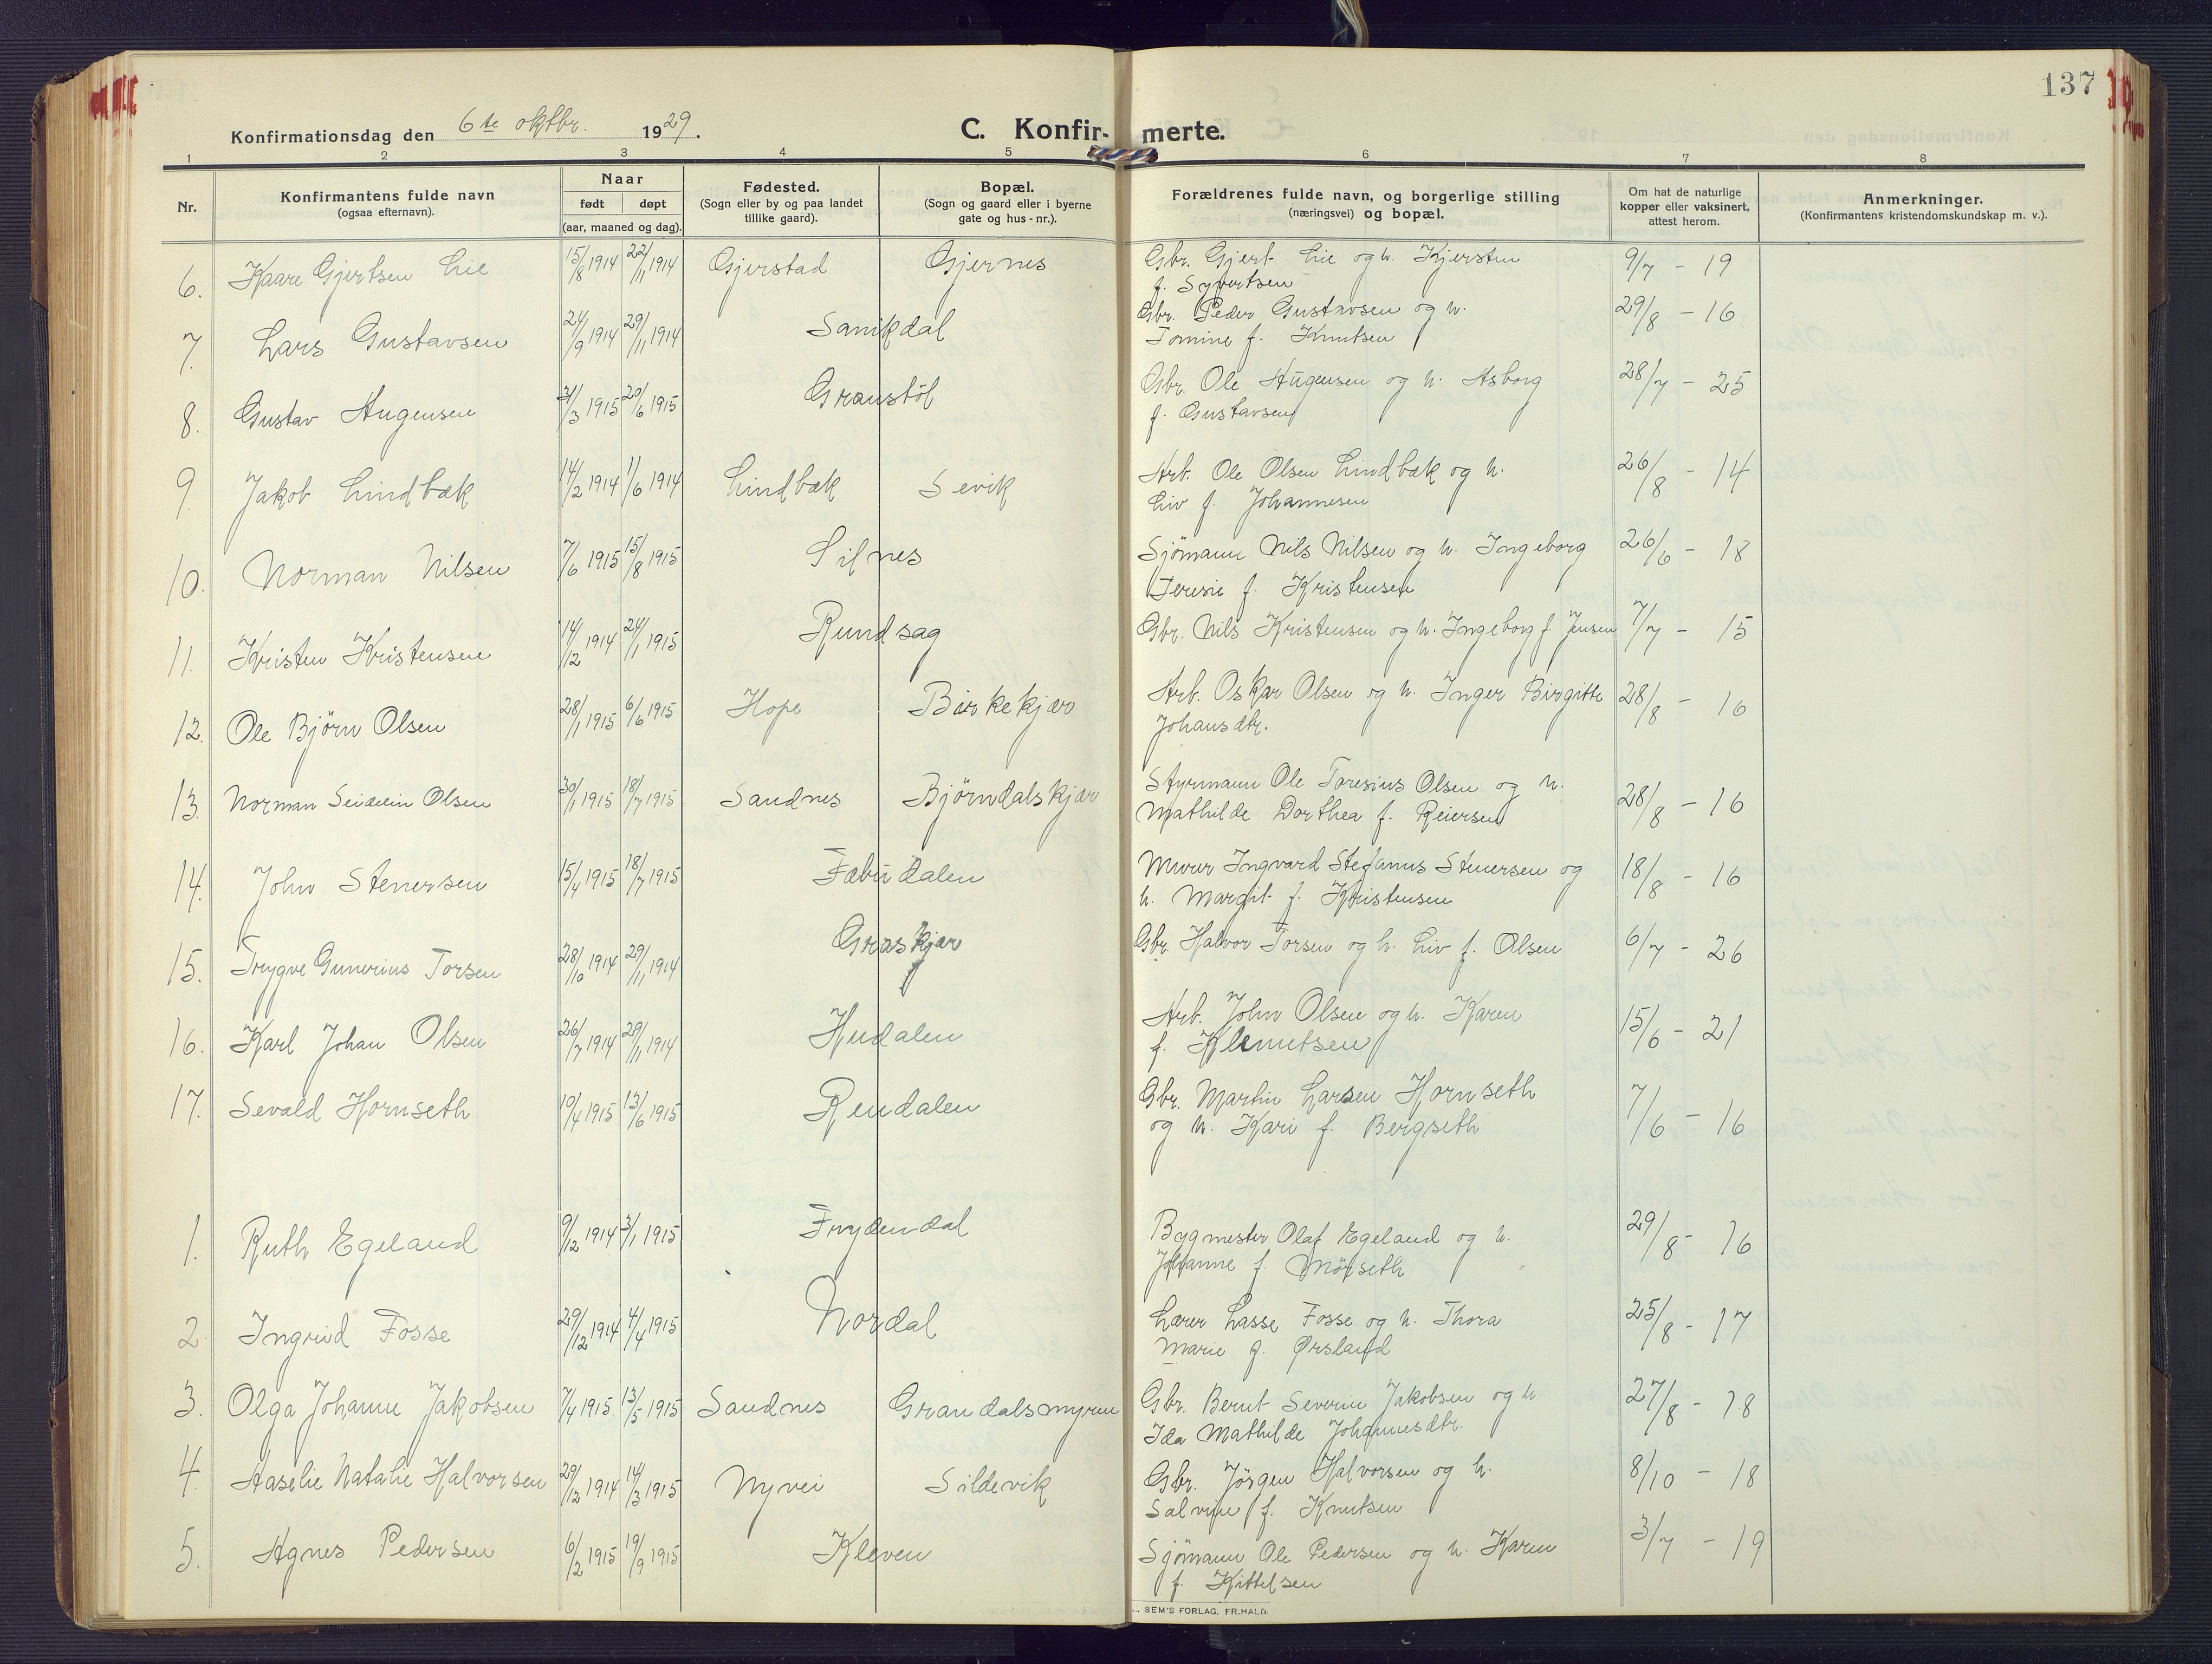 137
Konfirmationsdag den 6te oktbr. 1929.
C. Konfirmerte.
1 2 3 4 5 6 7 8
Nr.
Konfirmantens fulde navn
(ogsaa efternavn).
Naar
født døpt
(aar, maaned og dag).
Fødested.
(Sogn eller by og paa landet
tillike gaard).
Bopæl.
(Sogn og gaard eller i byerne
gate og hus-nr.).
Forældrenes fulde navn, og borgerlige stilling
(næringsvei) og bopæl.
Om hat de naturlige
kopper eller vaksinert,
attest herom.
Anmerkninger.
(Konfirmantens kristendomskundskap m. v.).
6. Kaare Gjertsen Lie 15/8 1914 22/11 1914 Gjerstad Gjernes Gbr. Gjert Lie og h. Kjersten 9/7 - 19
f. Syvertsen
7. Lars Gustavsen 24/9 1914 29/11 1914 Sanikdal Gbr. Peder Gustavsen og h. 29/8 - 16
Tomine f. Knutsen
8. Gustav Augensen 31/3 1915 20/6 1915 Granstøl Gbr. Ole Augensen og h. Asborg 28/7 - 25
f. Gustavsen
9. Jakob Lindbæk 14/2 1914 1/6 1914 Lindbæk Sevik Arb. Ole Olsen Lindbæk og h. 26/8 - 14
Liv f. Johannesen
10. Norman Nilsen 7/6 1915 15/8 1915 Silnes Sjömann Nils Nilsen og h. Ingeborg 26/6 - 18
Teresie f. Kristensen
11. Kristen Kristensen 14/12 1914 24/1 1915 Rundsag Gbr. Nils Kristensen og h. Ingeborg f Jensen 7/7 - 15
12. Ole Björn Olsen 28/1 1915 6/6 1915 Hope Birkekjær Arb. Oskar Olsen og h. Inger Birgitte 28/8 - 16
Johansdtr.
13. Norman Seidelin Olsen 30/1 1915 18/7 1915 Sandnes Björndalskjær Styrmann Ole Toresius Olsen og h. 28/8 - 16
Mathilde Dorthea f. Reiersen
14. John Stenersen 15/4 1915 18/7 1915 Fæbudalen Murer Ingvard Stefanus Stenersen og 18/8 - 16
h. Margit f. Kristensen
15. Trygve Gunerius Torsen 28/10 1914 29/11 1914 Graskjær Gbr. Halvor Torsen og h. Liv f. Olsen 6/7 - 26
16. Karl Johan Olsen 26/7 1914 29/11 1914 Hudalen Arb. John Olsen og h. Karen 15/6 - 21
f. Klemetsen
17. Sevald Hornseth 10/4 1915 13/6 1915 Rendalen Gbr. Martin Larsen Hornseth 7/6 - 16
og h. Kari f. Bergseth
1. Ruth Egeland 9/12 1914 3/1 1915 Frydendal Bygmester Olaf Egeland og h. 29/8 - 16
Johanne f Mörseth
2 Ingrid Fosse 29/12 1914 4/4 1915 Nordal Lærer Lasse Fosse og h. Thora 25/8 - 17
Marie f. Ørsland
3. Olga Johanne Jakobsen 7/4 1915 13/5 1915 Sandnes Grandalsmyren Gbr. Bernt Severin Jakobsen og h. 27/8 - 18
Ida Mathilde Johannesdtr.
4. Aaselie Natalie Halvorsen 29/12 1914 14/3 1915 Nyvei Sildevik Gbr. Jörgen Halvorsen og h. 8/10 - 18
Salvine f. Knutsen
5. Agnes Pedersen 6/2 1915 19/9 1915 Kleven Sjömann Ole Pedersen og h. Karen 3/7 - 19
f. Kittelsen
SEM'S FORLAG, FR.HALD.